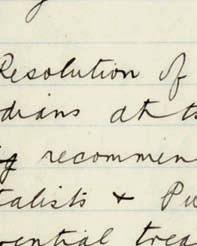 Resolution of
dians at
recommen
talists + Pu
ential trea